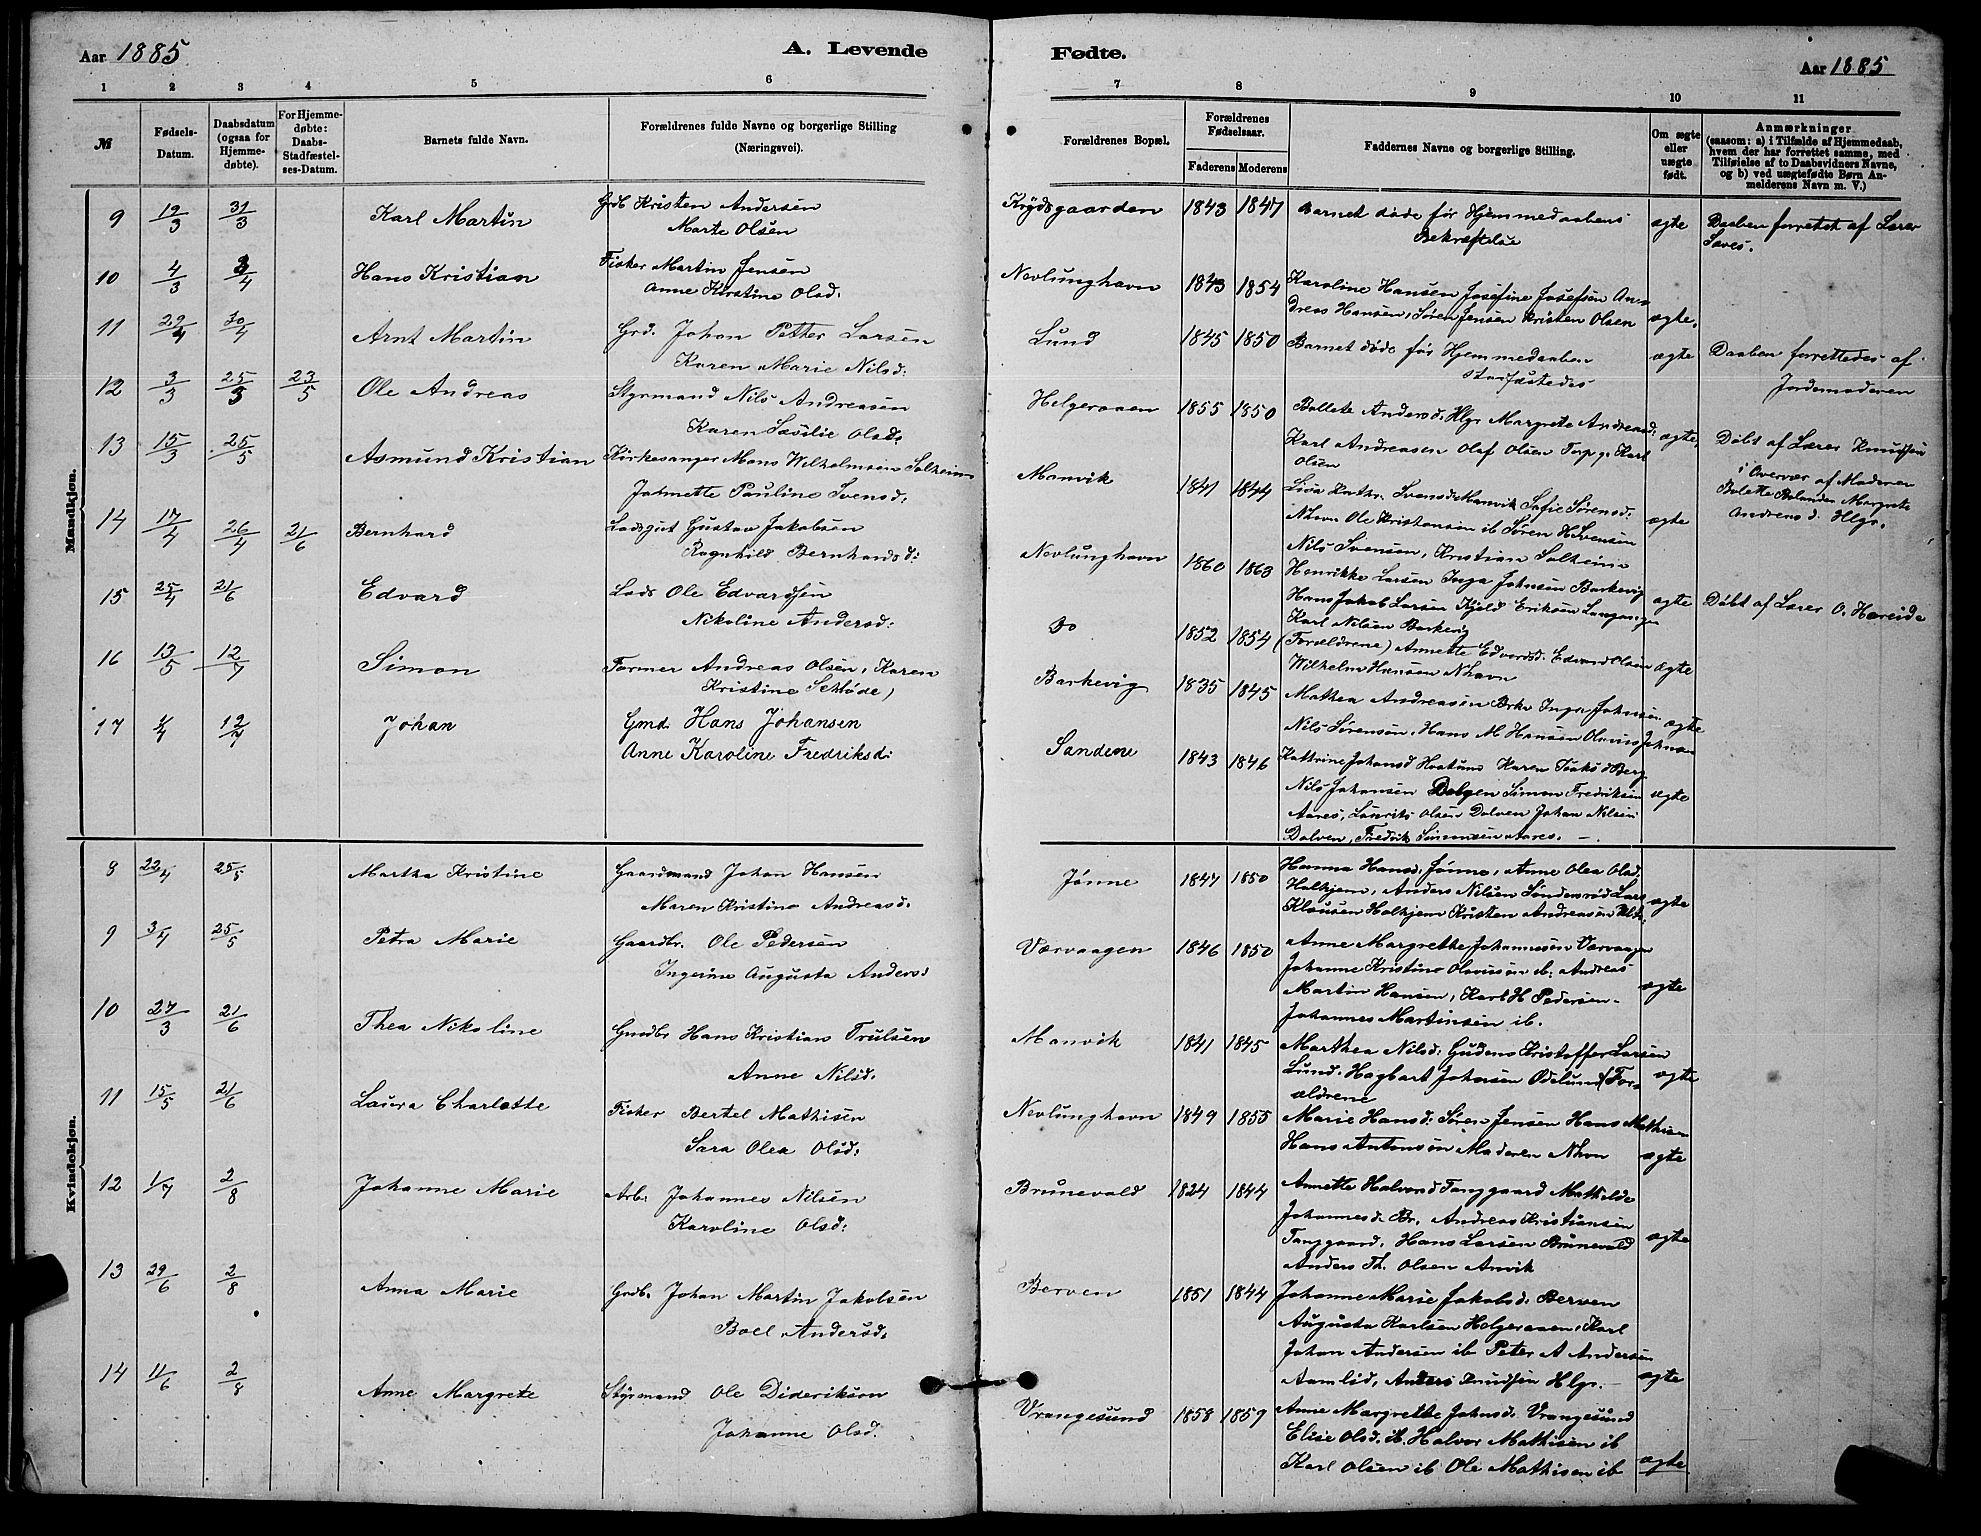 Aar 1885
A. Levende
Fødte.
Aar 1885
1 2 3 4 5 6 7 8 9 10 11
№
Fødsels-
Datum.
Daabsdatum
(ogsaa for
Hjemme-
døbte).
For Hjemme-
døbte:
Daabs-
Stadfæstel-
ses-Datum.
Barnets fulde Navn.
Forældrenes fulde Navne og borgerlige Stilling
(Næringsvei).
Forældrenes Bopæl.
Forældrenes
Fødselsaar.
Faderens Moderens
Faddernes Navne og borgerlige Stilling.
Om ægte
eller
uægte
født.
Anmærkninger
(saasom: a) i Tilfælde af Hjemmedaab,
hvem der har forrettet samme, med
Tilføielse af to Daabsvidners Navne,
og b) ved uægtefødte Børn An-
melderens Navn m. V.)
Mandkjøn.
9 19/3 31/3 Karl Martin Grdb Kristen Andersen
Marte Olsen
Krydsgaarden 1843 1847 Barnet døde før Hjemmedaabens
Bekræftelse
ægte
Daaben forrettet af Lærer
10 4/3 3/4 Hans Kristian Fisker Martin Jensen
Anne Kirstine Olsd:
Nevlunghavn 1843 1854 Karoline Hansen Josefine Josefsen An-
dreas Hansen, Søren Jensen Kristen Olsen ægte.
11 29/4 30/4 Arnt Martin Grd. Johan Petter Larsen
Karen Marie Nilsd:
Lund 1845 1850 Barnet døde før Hjemmedaaben
stadfæstedes
ægte
Daaben forrettedes af
Jordemoderen
12 3/3 25/3 23/5 Ole Andreas Styrmand Nils Andreasen
Karen Olsd:
Helgeraaen 1855 1850 Bollete Andersd: Hlgr Margrete Andreasd:
Karl Andreasen Olaf Olsen Karl
Olsen
ægte,
Døbt af Lærer Knudsen
i Overvær af Moderen
Andreasd. Hlgr.
13 15/3 25/5 Asmund Kristian Kirkesanger Mons Wilhelmsen Solheim
Jahnette Pauline Svensd:
Manvik 1841 1844 Svensd: Manvik Sofie Sørensd:
Nhavn Ole Kristensen ib Søren H Svensen
Nils Svensen, Kristian Solheim
ægte
14 17/4 26/4 21/6 Bernhard Lodsgut Gustav Jakobsen
Ragnhild Bernhardsd:
Nevlunghavn 1860 1863 Henrikke Larsen Inga Johnsen Barkevig
Hans Jakob Larsen Kjeld Eriksen Langangen
Karl Nilsen Barkevig
ægte
Døbt af Lærer O. Hareide
15 25/4 21/6 Edvard Lods Ole Edvardsen
Nikoline Andersd:
Do 1852 1854 (Forældrene) Annette Edvardsd: Edvard Olsen
Wilhelm Hansen Nhavn
ægte
16 13/5 12/7 Simon Former Andreas Olsen, Karen
Kristine Schøde)
Barkevig 1835 1845 Mathea Andreasen Brkv Inga Johnsen
Nils Sørensen, Hans M Hansen Olavus Johnsen
ægte
17 4/4 12/7 Johan Gmd. Hans Johansen
Anne Karoline Fredriksd:
Sandene 1843 1846 Kathrine Johansd Hvatund Karen Isaksd Berg
Nils Johansen Simon Fredriksen
Aares, Laurits Olsen Dolven Johan Nilsen
Dolven, Fredrik Simonsen Aares. —
ægte
Kvindekjøn.
8 22/4 25/5 Martha Kristine Gaardmand Johan Hansen
Maren Kristine Andreasd:
Jønne 1847 1850 Hanna Hansd: Jønne, Anne Olea Olsd.
Halhjem, Anders Nilsen Søndersrød Lars
Klausen Halhjem Kristen Andreasen
ægte
9 3/4 25/5 Petra Marie Gaardbr. Ole Pedersen
Ingerine Augusta Anders:
Værvaagen 1846 1850 Anne Margrethe Johannesen Værvaagen
Johanne Kristine Olavisen ib: Andreas
Martin Hansen, Karl H Pedersen
Johannes Martinsen ib.
ægte
10 27/3 21/6 Thea Nikoline Gmdbr Hans Kristian Trulsen
Anne Nilsd.
Manvik 1841 1845 Marthea Nilsd: Gudens Kristoffer Larsen
Lund. Hagbart Johnsen Odelund (For-
ældrene
ægte
11 15/5 21/6 Laura Charlotte Fisker Bertel Mathisen
Sara Olea Olsd:
Nevlunghavn 1849 1855 Marie Hansd: Søren Jensen Hans Mathisen
Hans Antonsen Moderen Nhvn
ægte
12 1/7 2/8 Johanne Marie Arb: Johannes Nilsen
Karoline Olsd:
Brunevald 1824 1844 Annette Halvorsd Tanggaard Mathilde
Johannesd. Br, Andreas Kristiansen
Tanggaard, Hans Larsen Brunevald
Anders Th. Olsen Anvik
ægte
13 29/6 2/8 Anna Marie Grdb. Johan Martin Jakobsen
Boel Andersd.
Berven 1851 1844 Johanne Marie Jakobsd. Berven
Augusta Karlsen Helgeraaen, Karl
Johan Andersen ib Peter A Andersen
Aamlid, Anders Knudsen Hlgr. —
ægte
14 11/6 2/8 Anne Margrete Styrmand Ole Dideriksen
Johanne Olsd.
Vrangesund 1858 1859 Anne Margrethe Johnsd. Vrangesund
Elise Olsd. ib. Halvor Mathisen ib
Karl Olsen ib Ole Mathisen ib
ægte